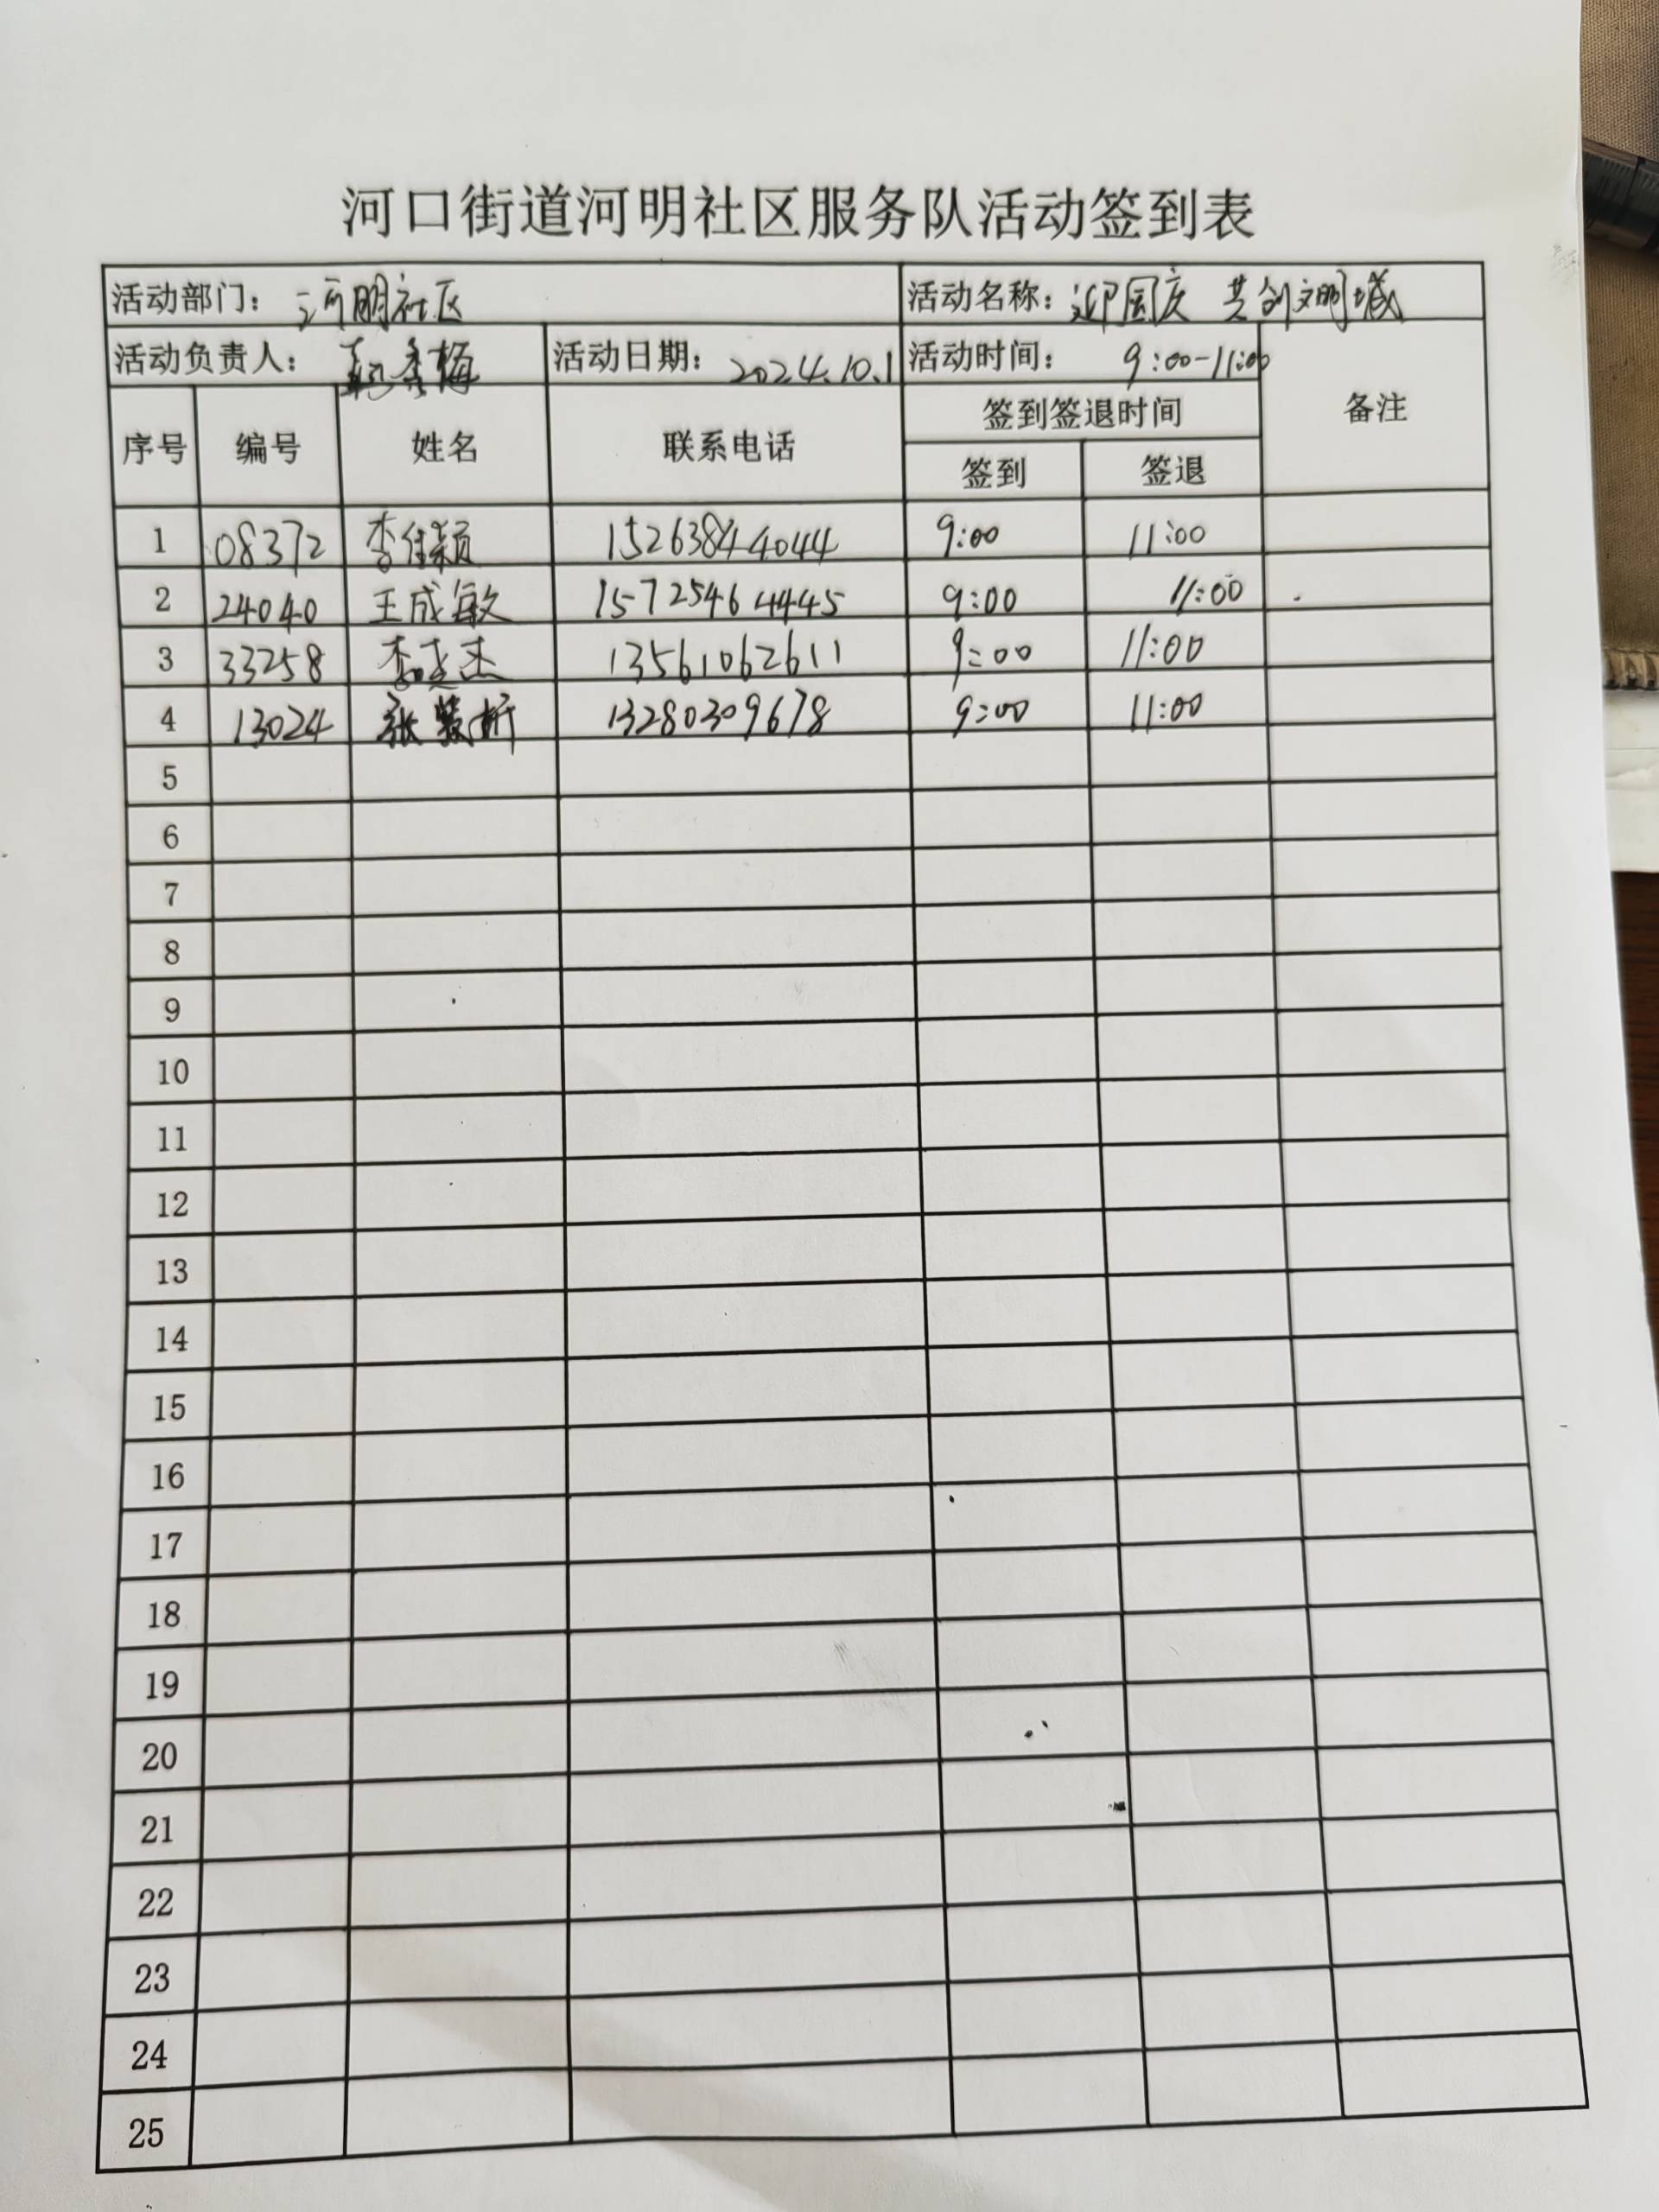 河口街道河明社区服务队活动签到表
活动部门： 河明社区 活动名称： 迎国庆 共创文明城
活动负责人： 秀梅 活动日期： 2024.10.1 活动时间： 9:00-11:00
序号 编号 姓名 联系电话 签到签退时间 备注
签到 签退
1 08372 李佳颖 15263844044 9:00 11:00
2 24040 王成敏 15725464445 9:00 11:00
3 33258 李 杰 13561062611 9:00 11:00
4 13024 张 13280309678 9:00 11:00
5
6
7
8
9
10
11
12
13
14
15
16
17
18
19
20
21
22
23
24
25